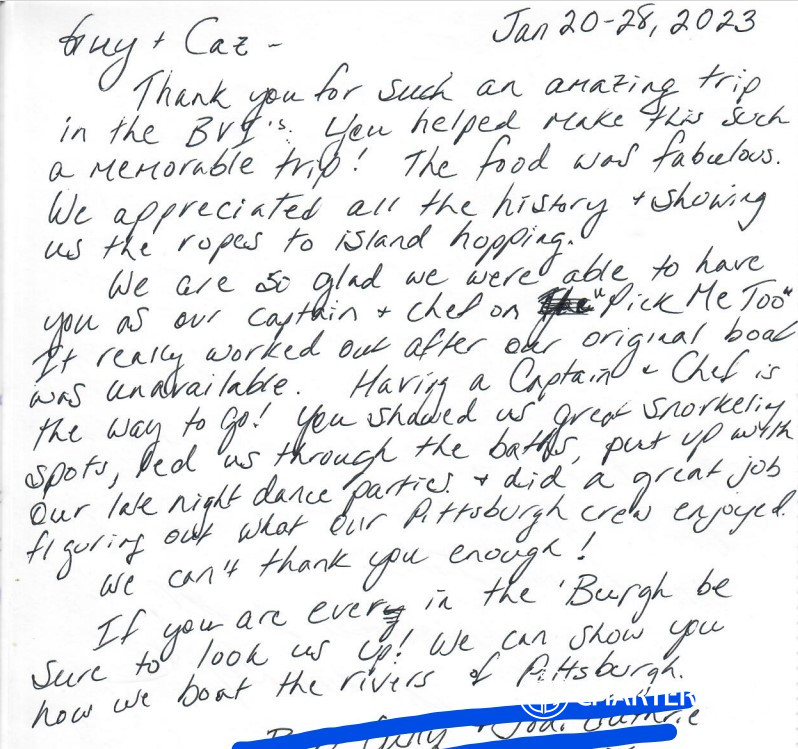 Jan 20-28, 2023
Guy + Caz -
Thank you for such an amazing trip
in the BVI's. You helped make this such
a memorable trip! The food was fabulous.
We appreciated all the history + showing
us the ropes to island hopping.
We are so glad we were able to have
you as our captain + chef on "Pick Me Too"
It really worked out after our original boat
was unavailable. Having a Captain + Chef is
the way to go! You showed us great snorkeling
spots, led us through the baths, put up with
our late night dance parties + did a great job
figuring out what our Pittsburgh crew enjoyed.
We can't thank you enough!
If you are ever in the 'Burgh be
sure to look us up! We can show you
how we boat the rivers of Pittsburgh.
CHARTER
Guthrie